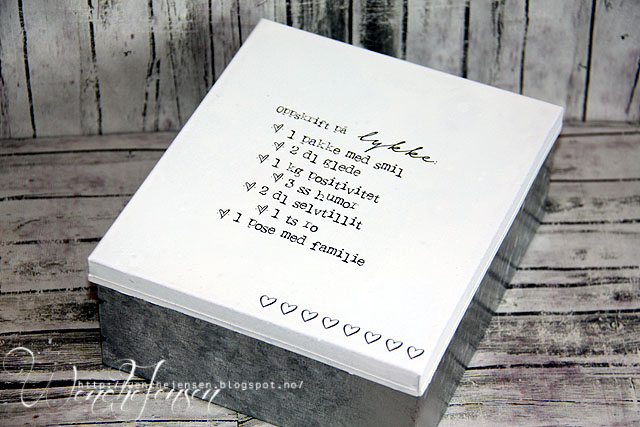 Oppskrift på lykke:
1 pakke med smil
2 dl glede
1 kg positivitet
3 ss humor
2 dl selvtillit
1 ts ro
1 pose med familie
Wenche Jensen
http://wenchejensen.blogspot.no/